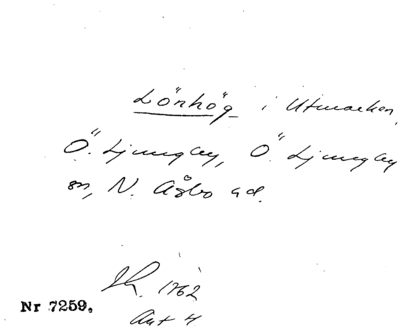 Lönhög i Utmarken,
Ö. Ljungby, Ö. Ljungby
sn, N. Åsbo hd.
1762
Akt 4
Nr 7259.